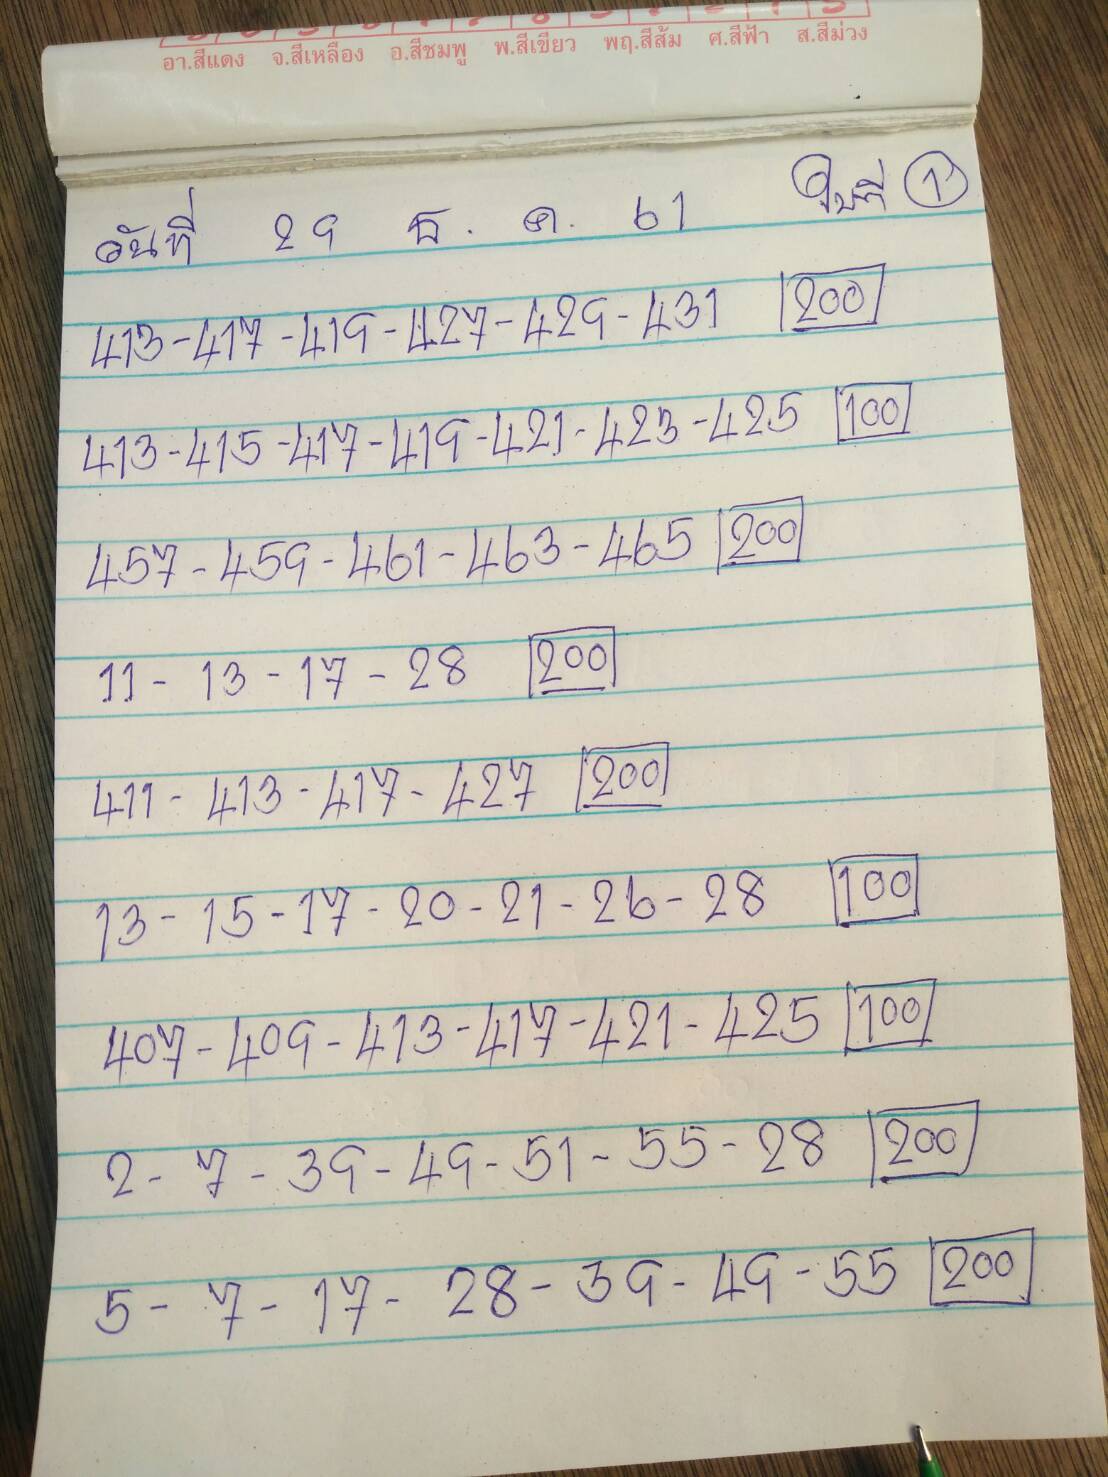 อา.สีแดง จ.สีเหลือง อ.สีชมพู พ.สีเขียว พฤ.สีส้ม ศ.สีฟ้า ส.สีม่วง
วันที่ 29 ธ.ค. 61 ใบที่ 1
413-417-419-427-429-431 200
413-415-417-419-421-423-425 100
457-459-461-463-465 200
11-13-17-28 200
411-413-417-427 200
13-15-17-20-21-26-28 100
407-409-413-417-421-425 100
2-7-39-49-51-55-28 200
5-7-17-28-39-49-55 200